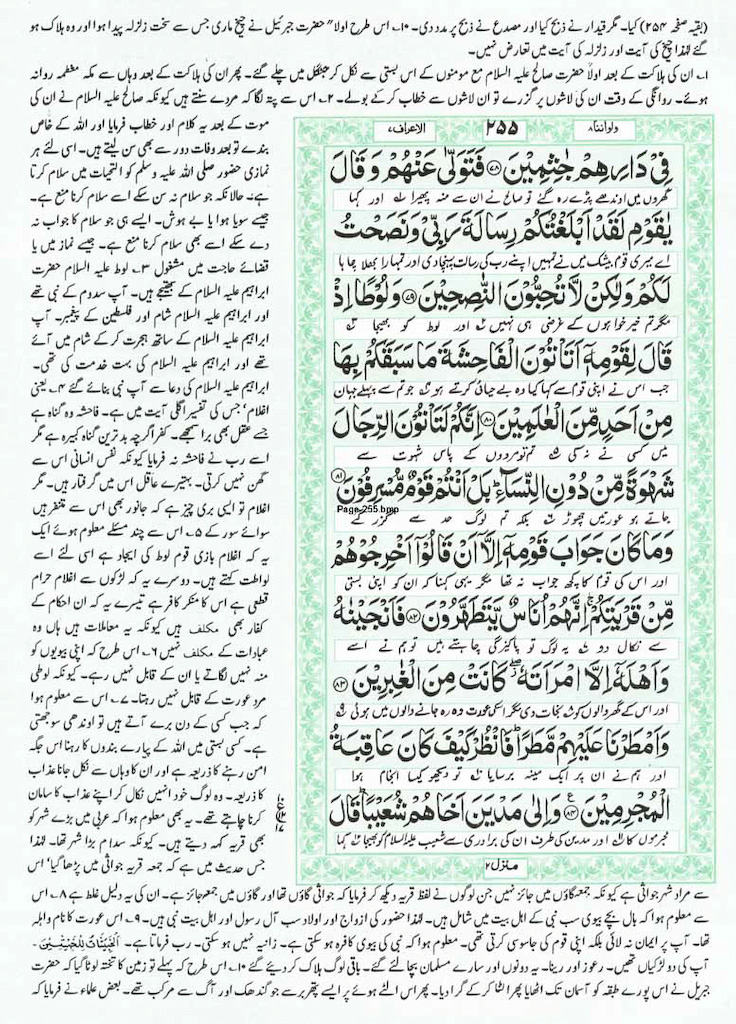 (بقیہ صفحہ ۲۵۴) کیا۔ مگر قیدار نے ذبح کیا اور مصدع نے ذبح پر مدد دی۔ ۱۰۔ اس طرح اولا" حضرت جبرئیل نے چیخ ماری جس سے سخت زلزلہ پیدا ہوا اور وہ ہلاک ہو
گئے لہٰذا چیخ کی آیت اور زلزلہ کی آیت میں تعارض نہیں۔
۱۔ ان کی ہلاکت کے بعد اولاً حضرت صالح علیہ السلام مع مومنوں کے اس بستی سے نکل کر جنگل میں چلے گئے۔ پھر ان کی ہلاکت کے بعد وہاں سے مکہ معظمہ روانہ
ہوئے۔ روانگی کے وقت ان کی لاشوں پر گزرے تو ان لاشوں سے خطاب کر کے بولے۔ ۲۔ اس سے پتہ لگا کہ مردے سنتے ہیں کیونکہ صالح علیہ السلام نے ان کی
موت کے بعد یہ کلام اور خطاب فرمایا اور اللہ کے خاص
بندے تو بعد وفات دور سے بھی سن لیتے ہیں۔ اسی لئے ہر
نمازی حضور صلی اللہ علیہ وسلم کو التحیات میں سلام کرتا
ہے۔ حالانکہ جو سلام نہ سن سکے اسے سلام کرنا منع ہے۔
جیسے سویا ہوا یا بے ہوش۔ ایسے ہی جو سلام کا جواب نہ
دے سکے اسے بھی سلام کرنا منع ہے۔ جیسے نماز میں یا
قضائے حاجت میں مشغول ۳۔ لوط علیہ السلام حضرت
ابراہیم علیہ السلام کے بھتیجے ہیں۔ آپ سدوم کے نبی تھے
اور ابراہیم علیہ السلام شام اور فلسطین کے پیغمبر۔ آپ
ابراہیم علیہ السلام کے ساتھ ہجرت کر کے شام میں آئے
تھے اور ابراہیم علیہ السلام کی بہت خدمت کی تھی۔
ابراہیم علیہ السلام کی دعا سے آپ نبی بنائے گئے ۴۔ یعنی
اغلام' جس کی تفسیر اگلی آیت میں ہے۔ فاحشہ وہ گناہ ہے
جسے عقل بھی برا سمجھے۔ کفر اگرچہ بدترین گناہ کبیرہ ہے مگر
اسے رب نے فاحشہ نہ فرمایا کیونکہ نفس انسانی اس سے
گھن نہیں کرتی۔ بہتیرے عاقل اس میں گرفتار ہیں۔ مگر
اغلام تو ایسی بری چیز ہے کہ جانور بھی اس سے متنفر ہیں
سوائے سور کے ۵۔ اس سے چند مسئلے معلوم ہوئے ایک
یہ کہ اغلام بازی قوم لوط کی ایجاد ہے اسی لئے اسے
لواطت کہتے ہیں۔ دوسرے یہ کہ لڑکوں سے اغلام حرام
قطعی ہے اس کا منکر کافر ہے تیسرے یہ کہ ان احکام کے
کفار بھی مکلف ہیں کیونکہ یہ معاملات ہیں ہاں وہ
عبادات کے مکلف نہیں ۶۔ اس طرح کہ اپنی بیویوں کو
منہ نہیں لگاتے یا ان کے قابل نہیں رہے۔ کیونکہ لوطی
مرد عورت کے قابل نہیں رہتا۔ ۷۔ اس سے معلوم ہوا
کہ جب کسی کے دن برے آتے ہیں تو اوندھی سوجھتی
ہے۔ کسی بستی میں اللہ کے پیارے بندوں کا رہنا اس جگہ
امن رہنے کا ذریعہ ہے اور ان کا وہاں سے نکل جانا عذاب
کا ذریعہ۔ وہ لوگ خود انہیں نکال کر اپنے عذاب کا سامان
کرنا چاہتے تھے۔ یہ بھی معلوم ہوا کہ عربی میں بڑے شہر کو
بھی قریہ کہہ دیتے ہیں۔ کیونکہ سدام بڑا شہر تھا۔ لہٰذا
جس حدیث میں ہے کہ جمعہ قریہ جواثی میں پڑھا گیا' اس
ولواننا۸
۲۵۵
الاعراف۷
فِيْ دَارِهِمْ جٰثِمِيْنَ ۷۸ فَتَوَلّٰى عَنْهُمْ وَ قَالَ
گھروں میں اوندھے پڑے رہ گئے تو صالح نے ان سے منہ پھیرا اور کہا
يٰقَوْمِ لَقَدْ اَبْلَغْتُكُمْ رِسَالَةَ رَبِّيْ وَنَصَحْتُ
اے میری قوم بیشک میں نے تمہیں اپنے رب کی رسالت پہنچا دی اور تمہارا بھلا چاہا
لَكُمْ وَلٰكِنْ لَّا تُحِبُّوْنَ النّٰصِحِيْنَ ۷۹ وَلُوْطًا اِذْ
مگر تم خیر خواہوں کے غرضی ہی نہیں اور لوط کو بھیجا
قَالَ لِقَوْمِهٖۤ اَتَاْتُوْنَ الْفَاحِشَةَ مَا سَبَقَكُمْ بِهَا
جب اس نے اپنی قوم سے کہا کیا وہ بے حیائی کرتے ہو جو تم سے پہلے جہان
مِنْ اَحَدٍ مِّنَ الْعٰلَمِيْنَ ۸۰ اِنَّكُمْ لَتَاْتُوْنَ الرِّجَالَ
میں کسی نے نہ کی تم تو مردوں کے پاس شہوت سے
شَهْوَةً مِّنْ دُوْنِ النِّسَآءِ بَلْ اَنْتُمْ قَوْمٌ مُّسْرِفُوْنَ ۸۱
Page-255.bmp
جاتے ہو عورتیں چھوڑ کر بلکہ تم لوگ حد سے گزر گئے
وَمَا كَانَ جَوَابَ قَوْمِهٖۤ اِلَّاۤ اَنْ قَالُوْۤا اَخْرِجُوْهُمْ
اور اس کی قوم کا کچھ جواب نہ تھا مگر یہی کہنا کہ ان کو اپنی بستی
مِّنْ قَرْيَتِكُمْ اِنَّهُمْ اُنَاسٌ يَّتَطَهَّرُوْنَ ۸۲ فَاَنْجَيْنٰهُ
سے نکال دو یہ لوگ تو پاکیزگی چاہتے ہیں تو ہم نے اسے
وَاَهْلَهٗۤ اِلَّا امْرَاَتَهٗ كَانَتْ مِنَ الْغٰبِرِيْنَ ۸۳
اور اس کے گھر والوں کو نجات دی مگر اس کی عورت وہ رہ جانے والوں میں ہوئی
وَاَمْطَرْنَا عَلَيْهِمْ مَّطَرًا فَانْظُرْ كَيْفَ كَانَ عَاقِبَةُ
اور ہم نے ان پر ایک مینہ برسایا تو دیکھو کیسا انجام ہوا
الْمُجْرِمِيْنَ ۸۴ وَاِلٰى مَدْيَنَ اَخَاهُمْ شُعَيْبًا قَالَ
مجرموں کا اور مدین کی طرف ان کی برادری سے شعیب علیہ السلام کو بھیجا کہا
منزل۲
سے مراد شہر جواثی ہے کیونکہ جمعہ گاؤں میں جائز نہیں جن لوگوں نے لفظ قریہ دیکھ کر فرمایا کہ جواثی گاؤں تھا اور گاؤں میں جمعہ جائز ہے۔ ان کی یہ دلیل غلط ہے ۸۔ اس
سے معلوم ہوا کہ بال بچے بیوی سب نبی کے اہل بیت میں شامل ہیں۔ لہٰذا حضور کی ازواج اور اولاد سب آل رسول اور اہل بیت نبی ہیں۔ ۹۔ اس عورت کا نام واہلہ
تھا۔ آپ پر ایمان نہ لائی بلکہ اپنی قوم کی جاسوسی کرتی تھی۔ معلوم ہوا کہ نبی کی بیوی کافرہ ہو سکتی ہے۔ زانیہ نہیں ہو سکتی۔ رب فرماتا ہے۔ اَلْخَبِيْثٰتُ لِلْخَبِيْثِيْنَ۔
آپ کی دو لڑکیاں تھیں۔ رعوز اور رینا۔ یہ دونوں اور سارے مسلمان بچا لئے گئے۔ باقی لوگ ہلاک کر دیئے گئے ۱۰۔ اس طرح کہ پہلے تو زمین کا تختہ لوٹا گیا کہ حضرت
جبریل نے اس پورے طبقہ کو آسمان تک اٹھایا پھر الٹا کر کے گرا دیا۔ پھر اس الٹے ہوئے پر ایسے پتھر برسے جو گندھک اور آگ سے مرکب تھے۔ بعض علماء نے فرمایا کہ